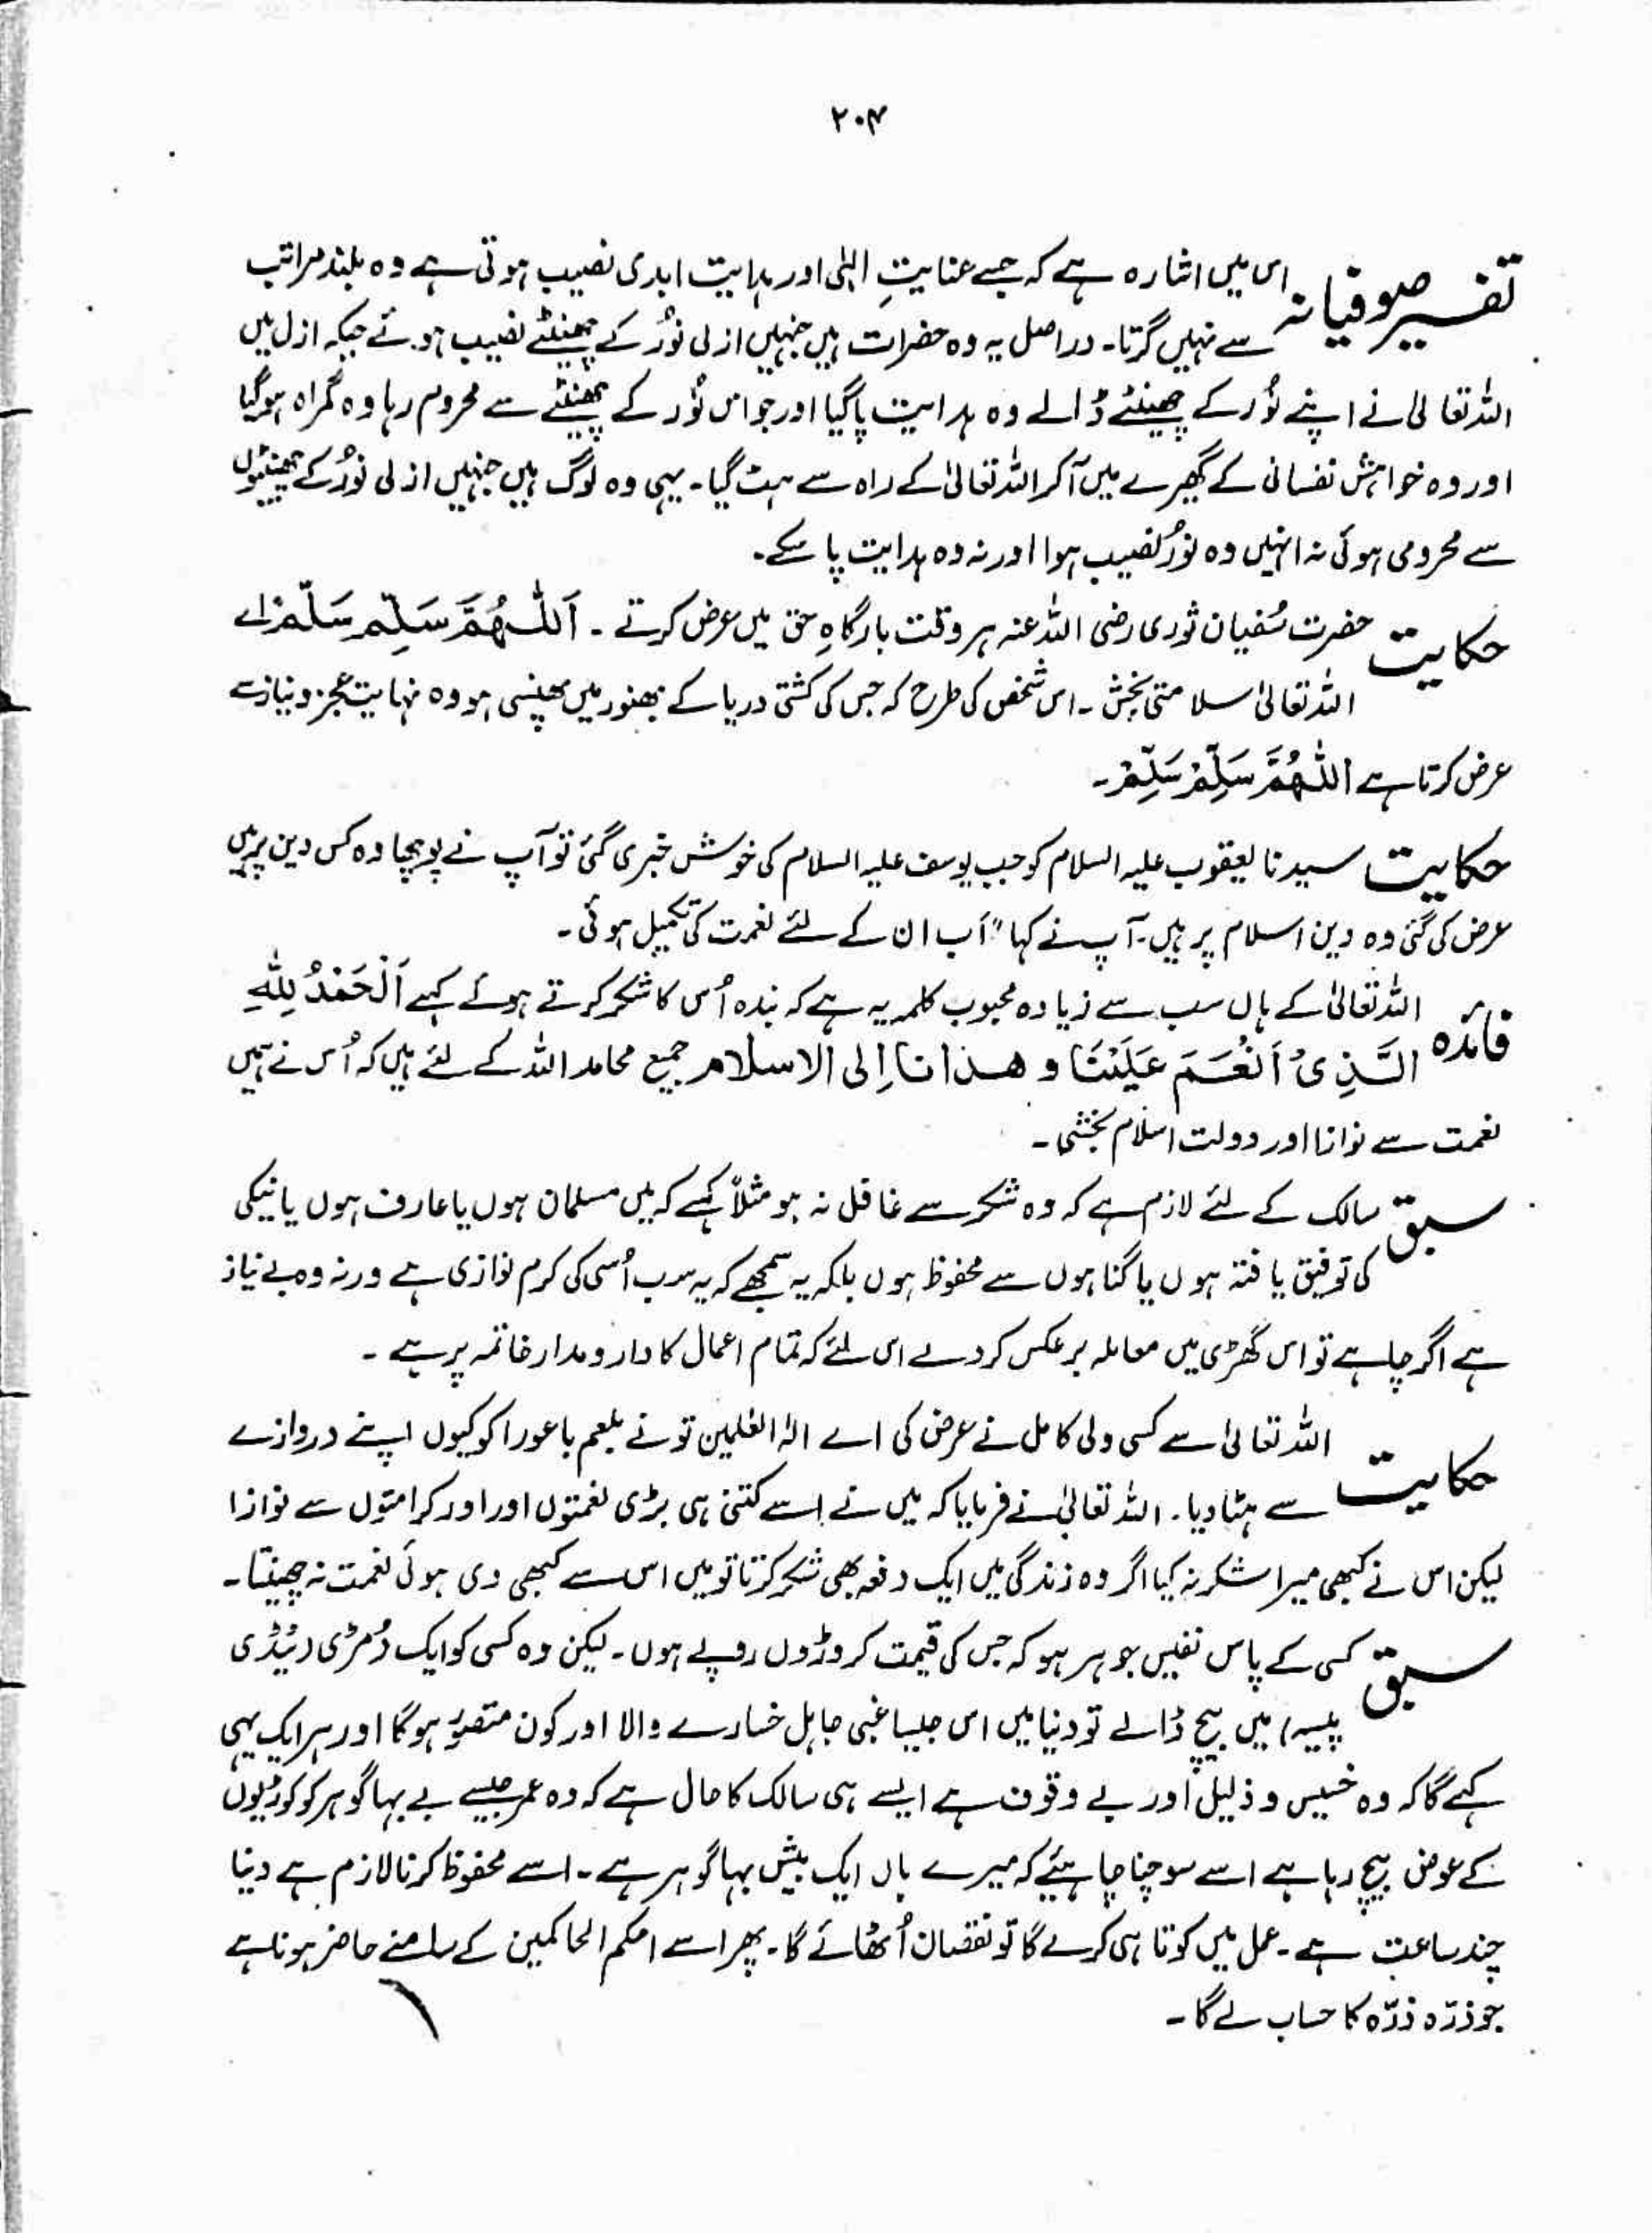 ۲۰۴
تفسیر صوفیانہ اس میں اشارہ ہے کہ جسے عنایتِ الہٰی اور ہدایت ابدی نصیب ہوتی ہے وہ بلند مراتب
سے نہیں گرتا۔ دراصل یہ وہ حضرات ہیں جنہیں ازلی نُور کے چھینٹے نصیب ہوئے جبکہ ازل میں
اللہ تعالیٰ نے اپنے نُور کے چھینٹے ڈالے وہ ہدایت پا گیا اور جو اس نُور کے چھینٹے سے محروم رہا وہ گمراہ ہوگیا
اور وہ خواہش نفسانی کے گھیرے میں آکر اللہ تعالیٰ کے راہ سے ہٹ گیا۔ یہی وہ لوگ ہیں جنہیں ازلی نُور کے چھینٹوں
سے محرومی ہوئی نہ انہیں وہ نُور نصیب ہوا اور نہ وہ ہدایت پا سکے۔
حکایت حضرت سُفیان ثوری رضی اللہ عنہ ہر وقت بارگاہِ حق میں عرض کرتے ۔ اَللّٰهُمَّ سَلِّم سَلِّمْ اے
اللہ تعالیٰ سلامتی بخش ۔ اس شخص کی طرح کہ جس کی کشتی دریا کے بھنور میں پھنسی ہو وہ نہایت عجز و نیاز سے
عرض کرتا ہے اللّٰهُمَّ سَلِّمْ سَلِّمْ۔
حکایت سیدنا یعقوب علیہ السلام کو جب یوسف علیہ السلام کی خوش خبری گئی تو آپ نے پوچھا وہ کس دین پر ہیں
عرض کی گئی وہ دین اسلام پر ہیں۔ آپ نے کہا "اَب ان کے لئے نعمت کی تکمیل ہوئی۔
فائدہ اللہ تعالیٰ کے ہاں سب سے زیادہ محبوب کلمہ یہ ہے کہ بندہ اُس کا شکر کرتے ہوئے کہے اَلْحَمْدُ لِلّٰهِ
الَّذِىْ اَنْعَمَ عَلَيْنَا و هدانا اِلى الاسلام جمیع محامد اللہ کے لئے ہیں کہ اُس نے ہمیں
نعمت سے نوازا اور دولت اسلام بخشی۔
سبق سالک کے لئے لازم ہے کہ وہ شکر سے غافل نہ ہو مثلاً کہے کہ میں مسلمان ہوں یا عارف ہوں یا نیکی
کی توفیق یافتہ ہوں یا گناہوں سے محفوظ ہوں بلکہ یہ سمجھے کہ یہ سب اُسی کی کرم نوازی ہے ورنہ وہ بے نیاز
ہے اگر چاہے تو اس گھڑی میں معاملہ برعکس کر دے اس لئے کہ تمام اعمال کا دار و مدار خاتمہ پر ہے ۔
حکایت اللہ تعالیٰ سے کسی ولی کامل نے عرض کی اے الہٰ العٰلمین تو نے بلعم باعورا کو کیوں اپنے دروازے
سے ہٹا دیا۔ اللہ تعالیٰ نے فرمایا کہ میں نے اسے کتنی ہی بڑی نعمتوں اور اور کرامتوں سے نوازا
لیکن اس نے کبھی میرا شکر نہ کیا اگر وہ زندگی میں ایک دفعہ بھی شکر کرتا تو میں اس سے کبھی دی ہوئی نعمت نہ چھینتا۔
سبق کسی کے پاس نفیس جوہر ہو کہ جس کی قیمت کروڑوں روپے ہوں۔ لیکن وہ کسی کو ایک دُمڑی (ٹیڈی
پیسہ) میں بیچ ڈالے تو دنیا میں اس جیسا غبی جاہل خسارے والا اور کون متصور ہوگا اور ہر ایک یہی
کہے گا کہ وہ خسیس و ذلیل اور بے وقوف ہے ایسے ہی سالک کا حال ہے کہ وہ عمر جیسے بے بہا گوہر کو کوڑیوں
کے عوض بیچ رہا ہے اسے سوچنا چاہیئے کہ میرے ہاں ایک بیش بہا گوہر ہے۔ اسے محفوظ کرنا لازم ہے دنیا
چند ساعت ہے۔ عمل میں کوتاہی کرے گا تو نقصان اُٹھائے گا۔ پھر اسے احکم الحاکمین کے سامنے حاضر ہونا ہے
جو ذرّہ ذرّہ کا حساب لے گا۔